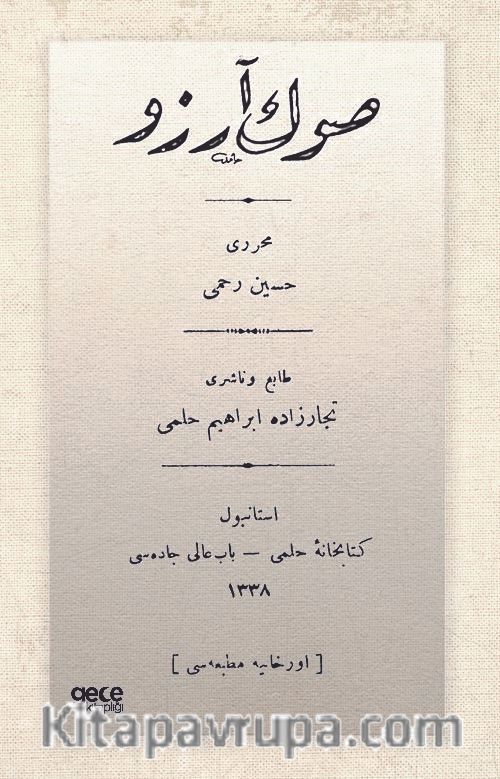 صوڭ آرزو
محرری
حسین رحمی
طابع و ناشری
تجارزاده ابراهیم حلمی
استانبول
كتابخانهٔ حلمی — باب عالی جاده‌سی
١٣٣٨
[ اورخانیه مطبعه‌سی ]
gece
kitaplığı
Kitapavrupa.com